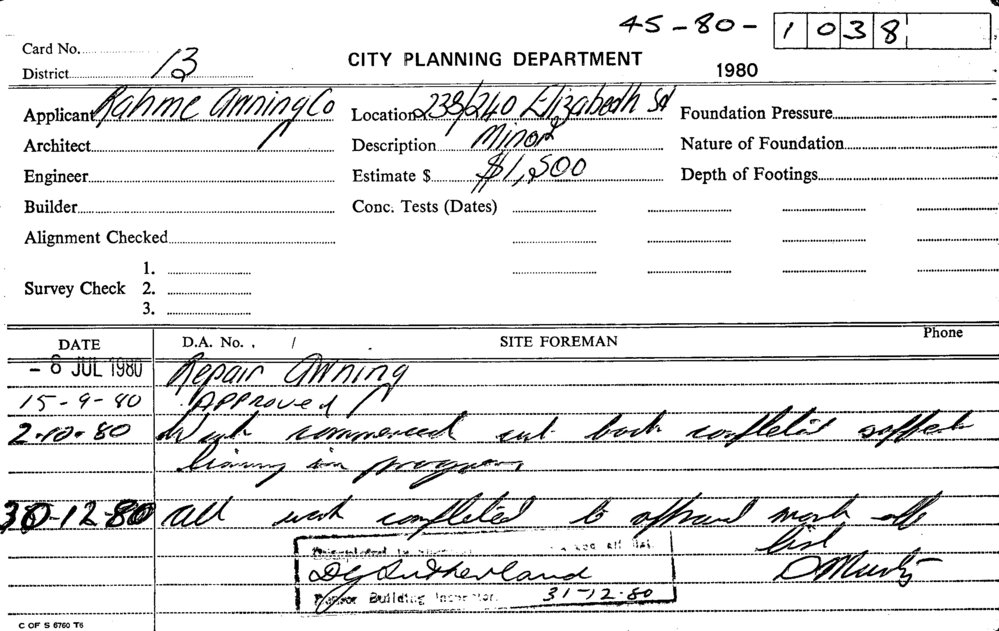 45-80-1038
Card No.
District 13
CITY PLANNING DEPARTMENT
1980
Applicant Rahme Awning Co
Location 238/240 Elizabeth St
Foundation Pressure
Architect
Description Minor
Nature of Foundation
Engineer
Estimate $ $1,500
Depth of Footings
Builder
Conc. Tests (Dates)
Alignment Checked
Survey Check
1.
2.
3.
DATE
D.A. No. /
SITE FOREMAN
Phone
- 8 JUL 1980 Repair Awning
15-9-80 Approved
2-12-80 Work commenced cut back completed soffit
lining in progress
30-12-80 all work completed to approval mark off
list
DG Sutherland
Building Inspector 31-12-80
C OF S 6760 T6